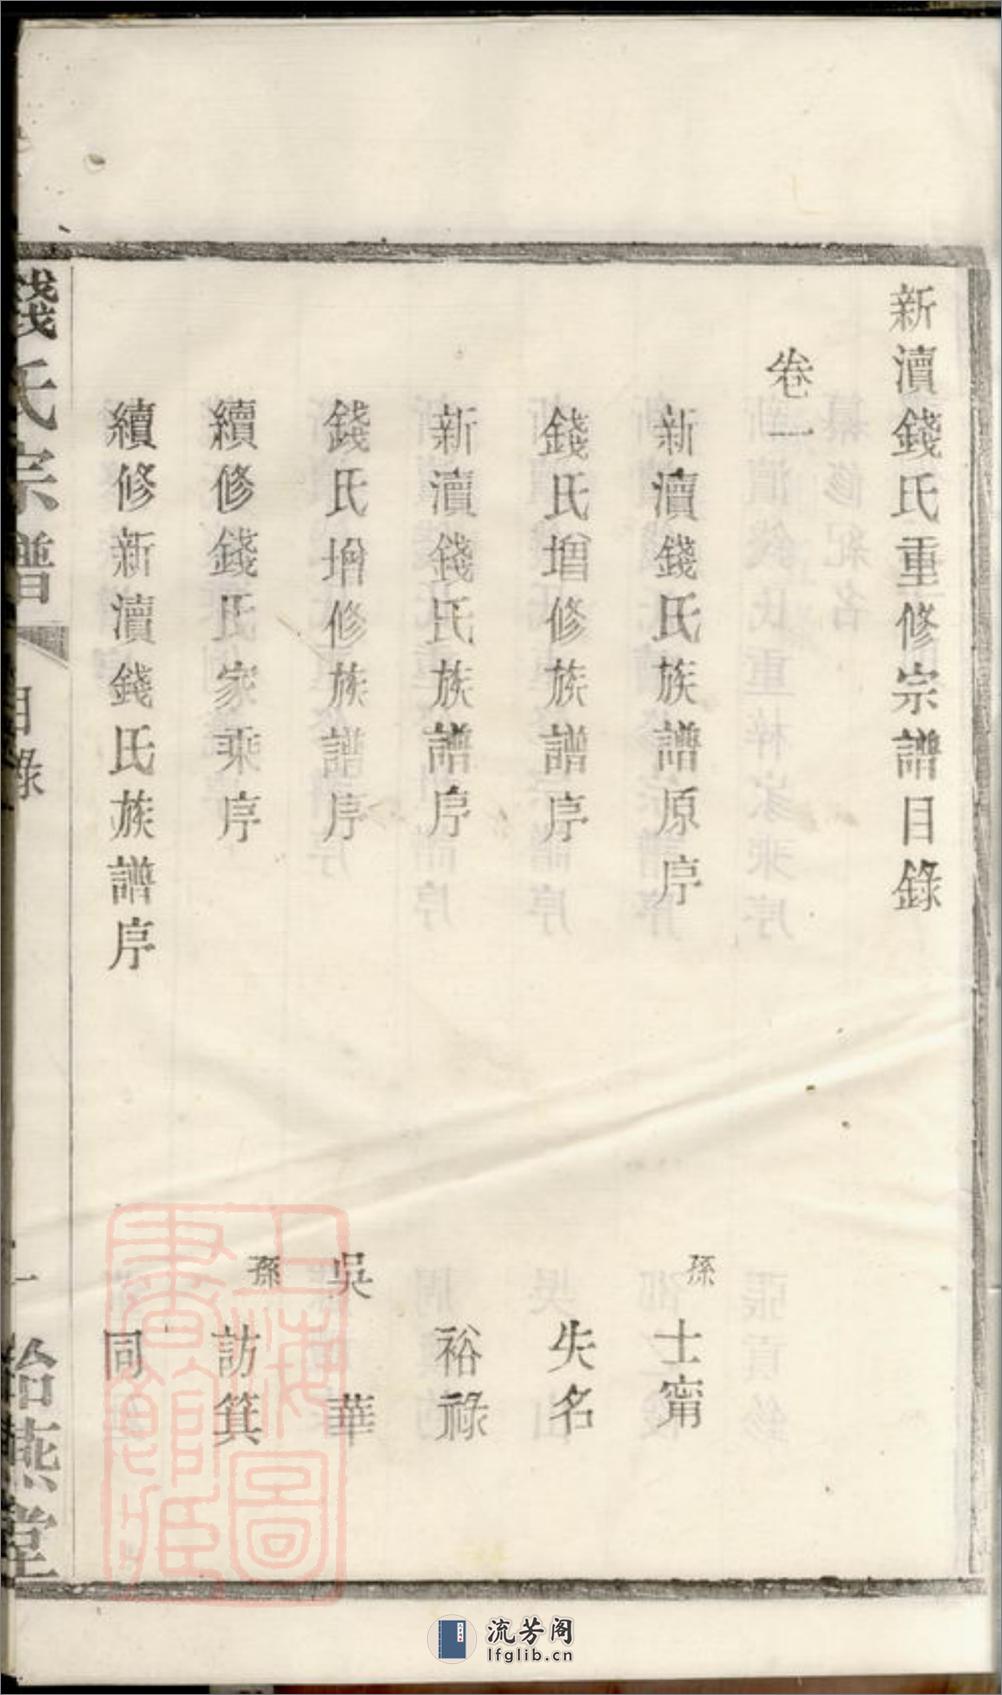 新瀆錢氏重修宗譜目錄
卷一
新瀆錢氏族譜原序 孫 士甯
錢氏增修族譜序 失名
新瀆錢氏族譜序 裕祿
錢氏增修族譜序 吳華
續修錢氏家乘序 孫 訪箕
續修新瀆錢氏族譜序 同
錢氏宗譜 目錄 一 怡燕堂
上海圖書館藏
流芳阁
lfglib.cn